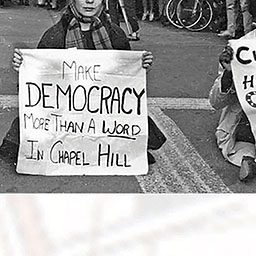 MAKE
DEMOCRACY
MORE THAN A WORD
IN CHAPEL HILL